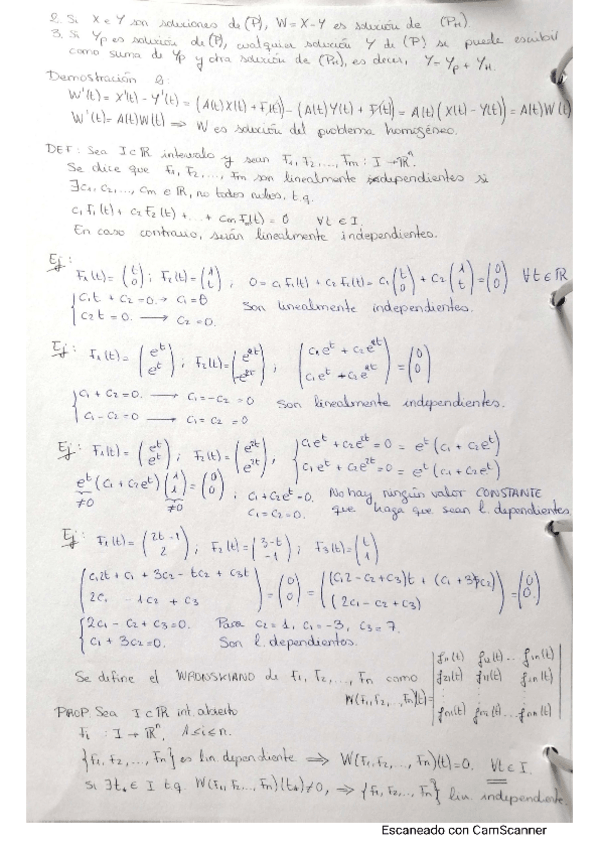 2. Si X e Y son soluciones de (P), W = X-Y es solución de (PH).
3. Si Yp es solución de (P), cualquier solución Y de (P) se puede escribir
como suma de Yp y otra solución de (PH), es decir, Y = Yp + YH.
Demostración
W'(t) = X'(t) - Y'(t) = (A(t)X(t) + F(t)) - (A(t)Y(t) + F(t)) = A(t)(X(t) - Y(t)) = A(t)W(t)
W'(t) = A(t)W(t) ⇒ W es solución del problema homogéneo.
DEF: Sea I⊂ℝ intervalo y sean F1, F2, ..., Fm : I → ℝⁿ.
Se dice que F1, F2, ..., Fm son linealmente dependientes si
∃ c1, c2, ..., cm ∈ ℝ, no todos nulos, t.q.
c1 F1(t) + c2 F2(t) + ... + cm Fm(t) = 0 ∀t ∈ I.
En caso contrario, serán linealmente independientes.
Ej:
F1(t) = (t 0); F2(t) = (1 t), 0 = c1 F1(t) + c2 F2(t) = c1 (t 0) + c2 (1 t) = (0 0) ∀t ∈ ℝ
c1t + c2 = 0 → c1 = 0 Son linealmente independientes.
c2t = 0. → c2 = 0.
Ej: F1(t) = (e^t e^t); F2(t) =
c1 + c2 = 0. → c1 = -c2 = 0 Son linealmente independientes.
c1 - c2 = 0 → c1 = c2 = 0
Ej: F1(t) = (e^t e^t); F2(t) = (e^2t e^2t), c1e^t + c2e^2t = 0 = e^t (c1 + c2e^t)
c1e^t + c2e^2t = 0 = e^t (c1 + c2e^t)
e^t (c1 + c2e^t) (1 1) = (0 0); c1 + c2e^t = 0. No hay ningún valor CONSTANTE
≠0 ≠0 c1 = c2 = 0. que haga que sean l. dependientes.
Ej: F1(t) = (2t-1 2); F2(t) = (3-t -1); F3(t) = (t 1)
2c1 - c2 + c3 = 0. Para c2 = 1, c1 = -3, c3 = 7.
c1 + 3c2 = 0. Son l. dependientes.
Se define el WRONSKIANO de F1, F2, ..., Fn como
W(F1, F2, ..., Fn)(t) = | f11(t) f12(t) ... f1n(t) |
f21(t)
fn1(t) ... fnn(t)
PROP. Sea I⊂ℝ int. abierto
Fi : I → ℝⁿ, 1≤i≤n.
{F1, F2, ..., Fn} es lin. dependiente ⇒ W(F1, F2, ..., Fn)(t) = 0. ∀t ∈ I.
Si ∃ t* ∈ I t.q. W(F1, F2, ..., Fn)(t*) ≠ 0, ⇒ {F1, F2, ..., Fn} lin. independiente.
Escaneado con CamScanner